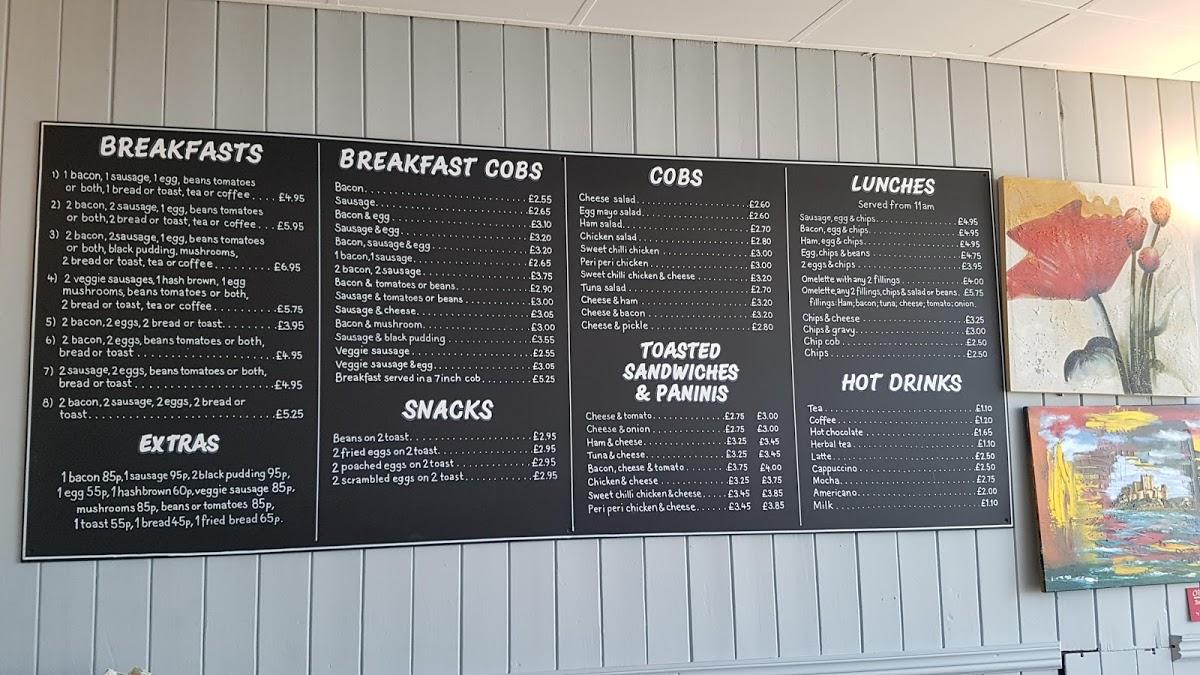 BREAKFASTS
1) 1 bacon, 1 sausage, 1 egg, beans tomatoes
or both, 1 bread or toast, tea or coffee.... £4.95
2) 2 bacon, 2 sausage, 1 egg, beans tomatoes
or both, 2 bread or toast, tea or coffee.... £5.95
3) 2 bacon, 2sausage, 1 egg, beans tomatoes
or both, black pudding, mushrooms,
2 bread or toast, tea or coffee.......... £6.95
4) 2 veggie sausages, 1 hash brown, 1 egg
mushrooms, beans tomatoes or both,
2 bread or toast, tea or coffee.......... £5.75
5) 2 bacon, 2 eggs, 2 bread or toast........ £3.95
6) 2 bacon, 2 eggs, beans tomatoes or both,
bread or toast.................... £4.95
7) 2 sausage, 2 eggs, beans tomatoes or both,
bread or toast.................... £4.95
8) 2 bacon, 2 sausage, 2 eggs, 2 bread or
toast.......................... £5.25
EXTRAS
1 bacon 85p, 1 sausage 95p, 2 black pudding 95p,
1 egg 55p, 1 hashbrown 60p, veggie sausage 85p,
mushrooms 85p, beans or tomatoes 85p,
1 toast 55p, 1 bread 45p, 1 fried bread 65p.
BREAKFAST COBS
Bacon.................... £2.55
Sausage.................... £2.65
Bacon & egg.................... £3.10
Sausage & egg.................... £3.20
Bacon, sausage & egg.................... £3.20
1 bacon, 1 sausage.................... £2.65
2 bacon, 2 sausage.................... £3.75
Bacon & tomatoes or beans.................... £2.90
Sausage & tomatoes or beans.................... £3.00
Sausage & cheese.................... £3.05
Bacon & mushroom.................... £3.00
Sausage & black pudding.................... £3.55
Veggie sausage.................... £2.55
Veggie sausage & egg.................... £3.05
Breakfast served in a 7 inch cob.................... £5.25
SNACKS
Beans on 2 toast.................... £2.95
2 fried eggs on 2 toast.................... £2.95
2 poached eggs on 2 toast.................... £2.95
2 scrambled eggs on 2 toast.................... £2.95
COBS
Cheese salad.................... £2.60
Egg mayo salad.................... £2.60
Ham salad.................... £2.70
Chicken salad.................... £2.80
Sweet chilli chicken.................... £3.00
Peri peri chicken.................... £3.00
Sweet chilli chicken & cheese.................... £3.20
Tuna salad.................... £2.70
Cheese & ham.................... £3.20
Cheese & bacon.................... £3.20
Cheese & pickle.................... £2.80
TOASTED
SANDWICHES
& PANINIS
Cheese & tomato.................... £2.75 £3.00
Cheese & onion.................... £2.75 £3.00
Ham & cheese.................... £3.25 £3.45
Tuna & cheese.................... £3.25 £3.45
Bacon, cheese & tomato.................... £3.75 £4.00
Chicken & cheese.................... £3.25 £3.75
Sweet chilli chicken & cheese...... £3.45 £3.85
Peri peri chicken & cheese....... £3.45 £3.85
LUNCHES
Served from 11am
Sausage, egg & chips.................... £4.95
Bacon, egg & chips.................... £4.95
Ham, egg & chips.................... £4.95
Egg, chips & beans.................... £4.75
2 eggs & chips.................... £3.95
Omelette with any 2 fillings.................... £4.00
Omelette, any 2 fillings, chips & salad or beans.. £5.75
fillings: Ham; bacon; tuna; cheese; tomato; onion.
Chips & cheese.................... £3.25
Chips & gravy.................... £3.00
Chip cob.................... £2.50
Chips.................... £2.50
HOT DRINKS
Tea.................... £1.10
Coffee.................... £1.20
Hot chocolate.................... £1.65
Herbal tea.................... £1.10
Latte.................... £2.50
Cappuccino.................... £2.50
Mocha.................... £2.75
Americano.................... £2.00
Milk.................... £1.10